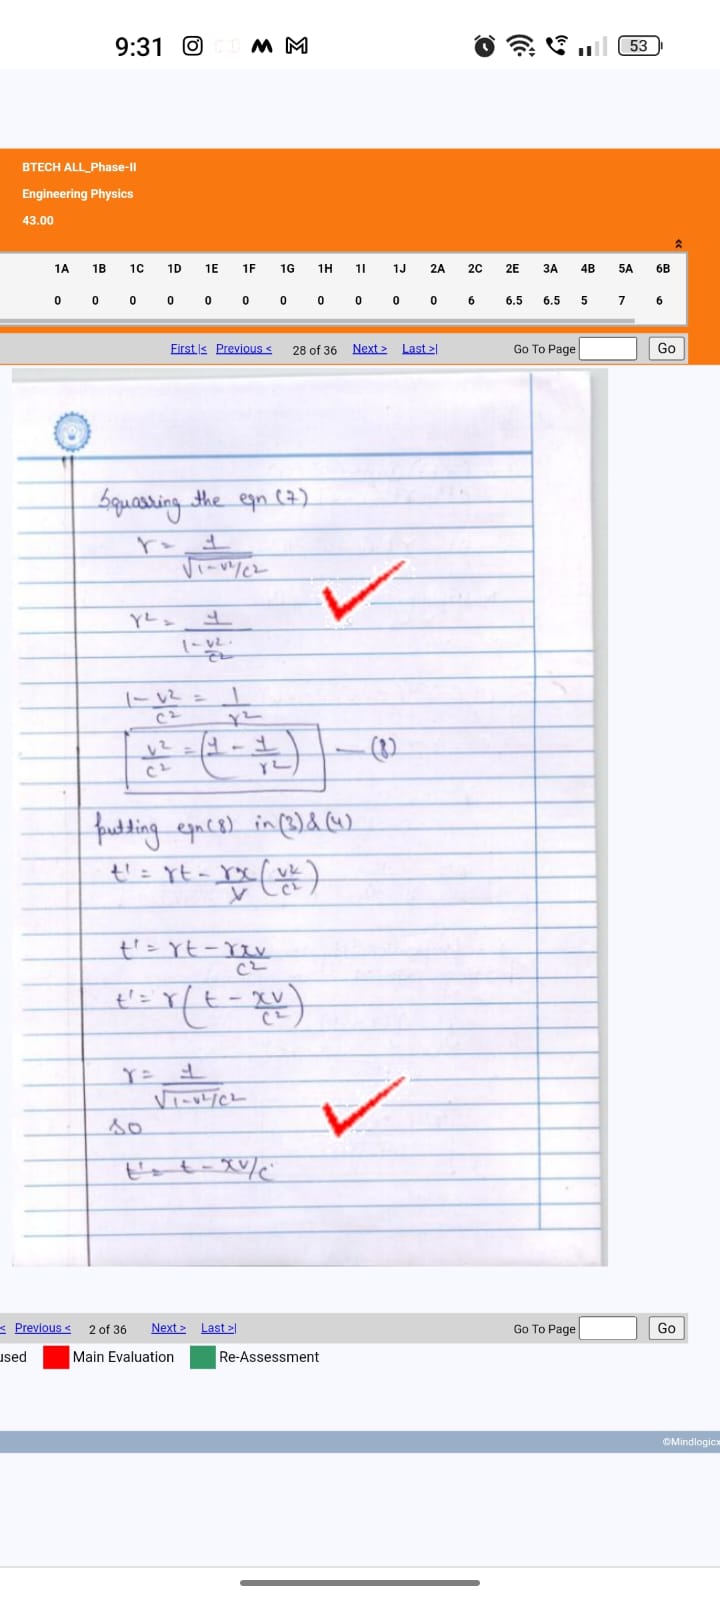 9:31
53
BTECH ALL_Phase-II
Engineering Physics
43.00
1A 1B 1C 1D 1E 1F 1G 1H 1I 1J 2A 2C 2E 3A 4B 5A 6B
0 0 0 0 0 0 0 0 0 0 0 6 6.5 6.5 5 7 6
First |< Previous < 28 of 36 Next > Last >| Go To Page Go
Squarring the eqn (7)
γ = 1/√1-v²/c²
γ² = 1/1-v²/c²
1 - v²/c² = 1/γ²
v²/c² = (1 - 1/γ²) — (8)
putting eqn (8) in (3) & (4)
t' = γt - γx/v (v²/c²)
t' = γt - γxv/c²
t' = γ(t - xv/c²)
γ = 1/√1-v²/c²
so
t' = t - xv/c
< Previous < 2 of 36 Next > Last >| Go To Page Go
used Main Evaluation Re-Assessment
©Mindlogicx